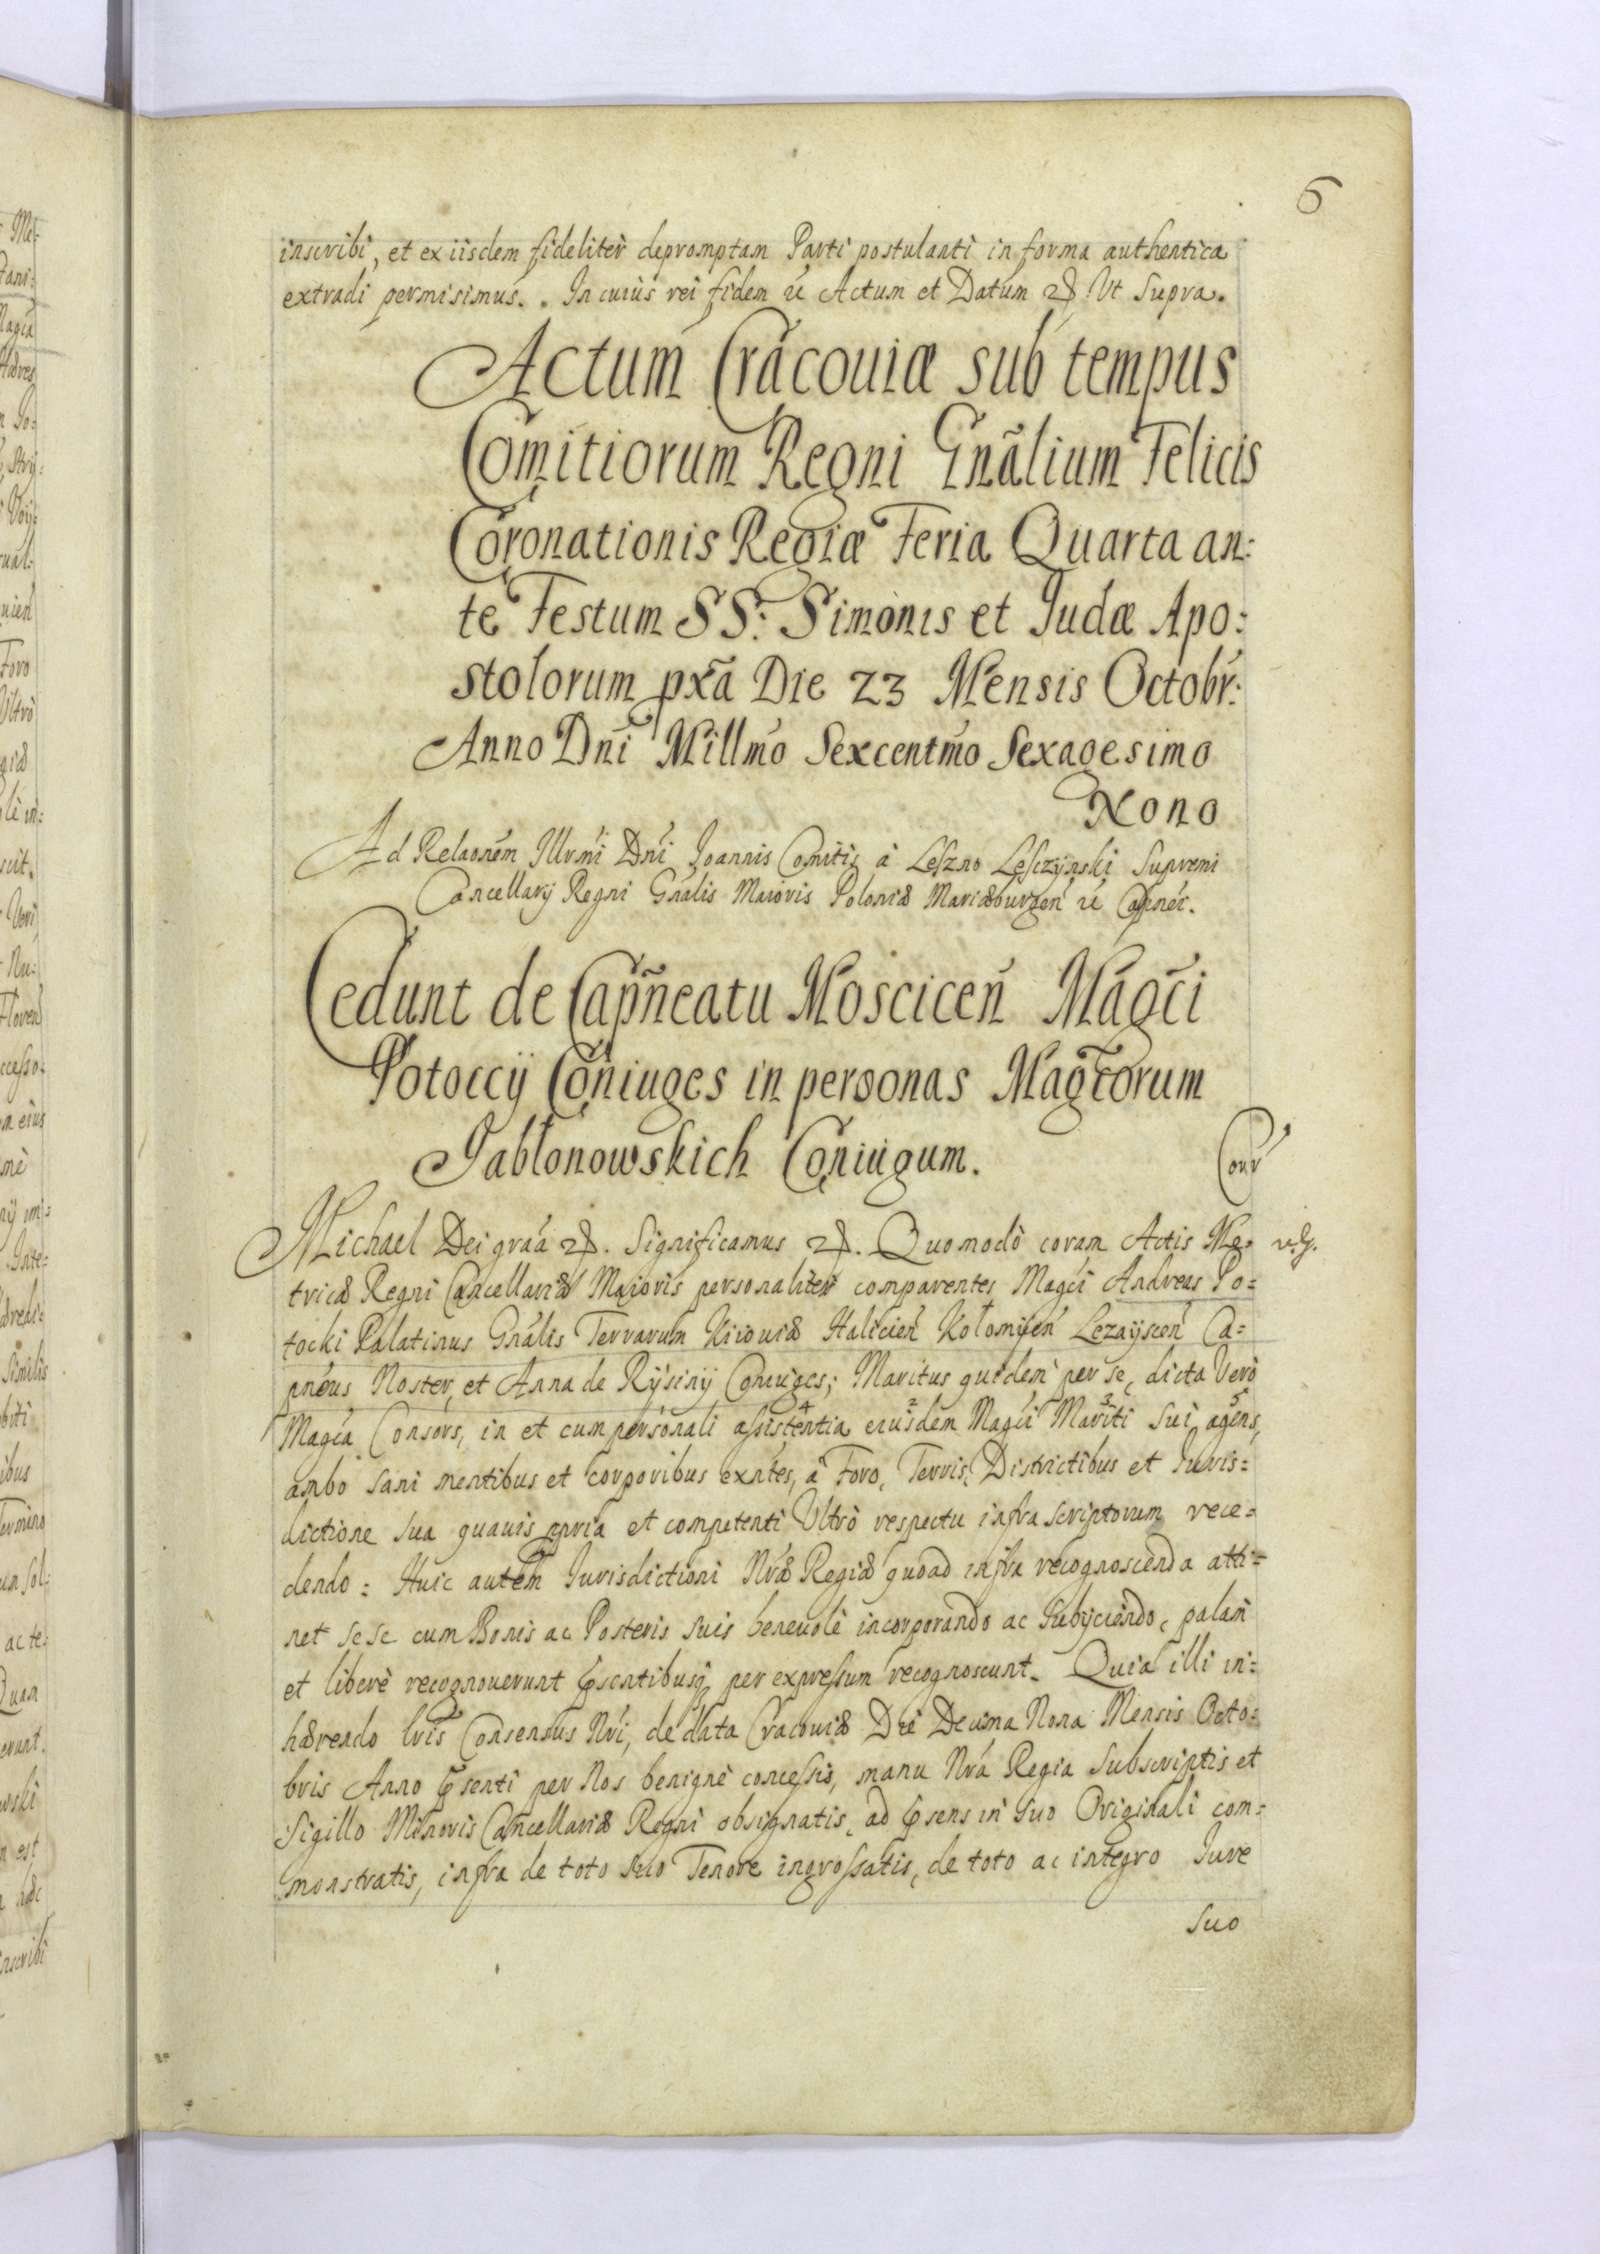 6
inscribi, et ex iisdem fideliter depromptam Parti postulanti in forma authentica
extradi permisimus. In cuius rei fidem Actum et Datum Ut Supra.
Actum Cracouiæ sub tempus
Comitiorum Regni Gñalium Felicis
Coronationis Regiæ Feria Quarta an:
te Festum SS: Simonis et Judæ Apo:
stolorum pxã Die 23 Mensis Octobr:
Anno Dni Millmo Sexcentmo Sexagesimo
Nono
Ad Relaonem Illrmi Dni Joannis Comitis à Leszno Lesczynski Supremi
Cancellarij Regni Gnalis Maioris Poloniæ Mariæburgen Capnei.
Cedunt de Capñeatu Moscicen Magci
Potoccij Coñiuges in personas Magcorum
Jabłonowskich Coniugum.
Conr
Michael Dei graa Significamus Quomodò coram Actis Me-
tricæ Regni Cancellariæ Maioris personaliter comparentes Magci Andreas Po=
tocki Palatinus Gnalis Terrarum Kiiouiæ Halicien Kołomijen Lezayscen Ca=
pneus Noster, et Anna de Rysiny Coniuges; Maritus quidem per se, dicta Verò
Magca Consors, in et cum personali assistentia eiusdem Magci Mariti sui agens,
ambo sani mentibus et corporibus exntes, à Foro, Terris, Districtibus et Iuris=
dictione sua quauis ppria et competenti Ultrò respectu infra scriptorum rece=
dendo: Huic autem Iurisdictioni Nræ Regiæ quoad infra recognoscenda atti=
net sese cum Bonis ac Posteris suis beneuolè incorporando ac subijciendo, palam
et liberè recognouerunt psentibusq per expressum recognoscunt. Quia illi in=
hærendo lris Consensus Nri, de data Cracouiæ Die Decima Nona Mensis Octo=
bris Anno psenti per Nos benignè concessis, manu Nra Regia subscriptis et
Sigillo Minoris Cancellariæ Regni obsignatis, ad psens in suo Originali com=
monstratis, infra de toto suo Tenore ingrossatis, de toto ac integro Iure
suo